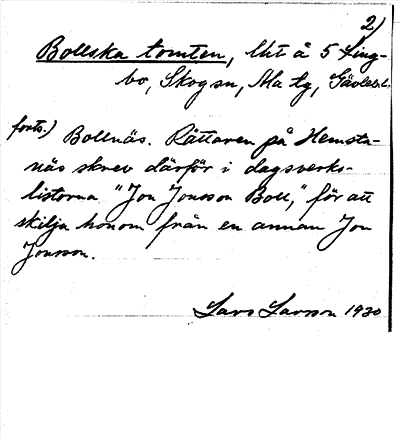 2)
Bollska tomten, lht å 5 Ling-
bo, Skogsn, Ma tg, Gävlebl.
forts.) Bollnäs. Rättaren på Hemsta-
näs skrev därför i dagsverks-
listorna "Jon Jonsson Boll," för att
skilja honom från en annan Jon
Jonsson.
Lars Larsson 1930